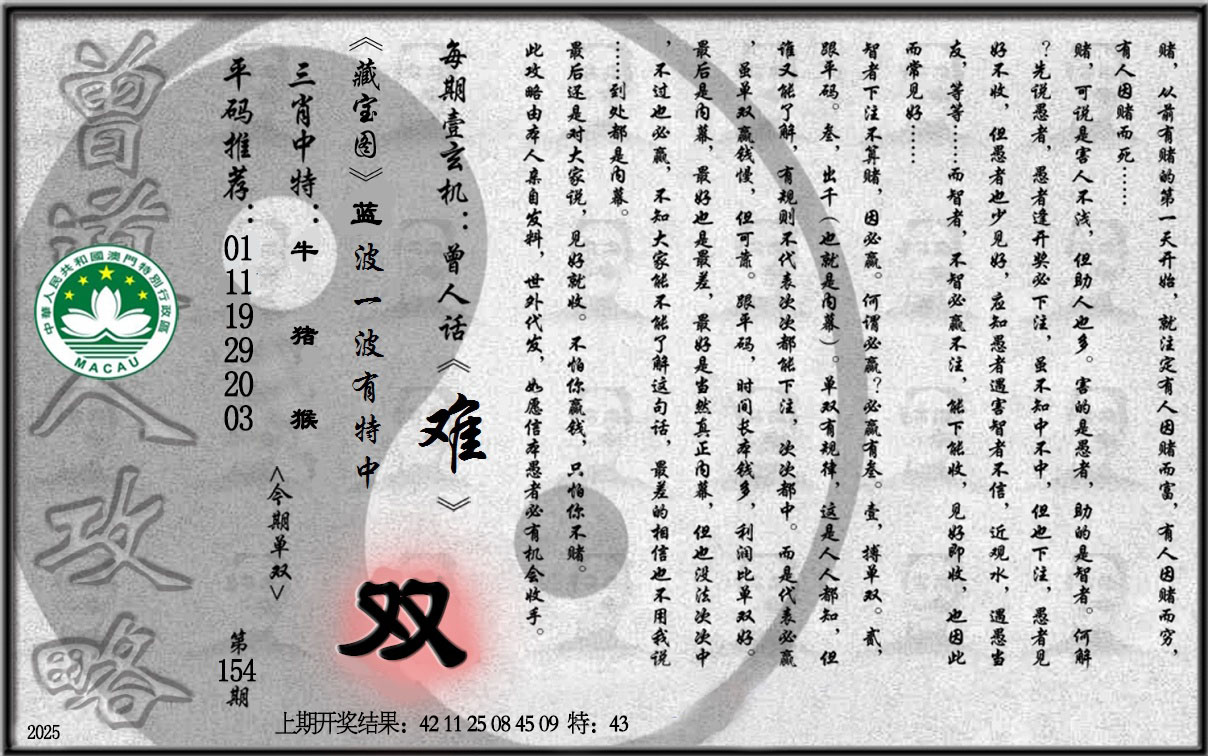 赌，从前有赌的第一天开始，就注定有人因赌而富，有人因赌而穷，
有人因赌而死……
赌，可说是害人不浅，但助人也多。害的是愚者，助的是智者。何解
？先说愚者，愚者逢开奖必下注，虽不知中不中，但也下注，愚者见
好不收，但愚者也少见好，应知愚者遇害智者不信，近观水，遇愚当
友，等等……而智者，不智必赢不注，能下能收，见好即收，也因此
而常见好……
智者下注不算赌，因必赢。何谓必赢？必赢有叁。壹，搏单双。贰，
跟平码。叁，出千（也就是内幕）。单双有规律，这是人人都知，但
谁又能了解，有规则不代表次次都能下注，次次都中。而是代表必赢
，虽单双赢钱慢，但可靠。跟平码，时间长本钱多，利润比单双好。
最后是内幕，最好也是最差，最好是当然真正内幕，但也没法次次中
，不过也必赢，不知大家能不能了解这句话，最差的相信也不用我说
……到处都是内幕。
最后还是对大家说，见好就收。不怕你赢钱，只怕你不赌。
此攻略由本人亲自发料，世外代发，如愿信本愚者必有机会收手。
每期壹玄机：曾人话《难》
《藏宝图》蓝波一波有特中
双
三肖中特：牛 猪 猴
<今期单双>
平码推荐：01 11 19 29 20 03
第154期
曾道人攻略
中華人民共和國澳門特別行政區
MACAU
2025
上期开奖结果：42 11 25 08 45 09 特：43